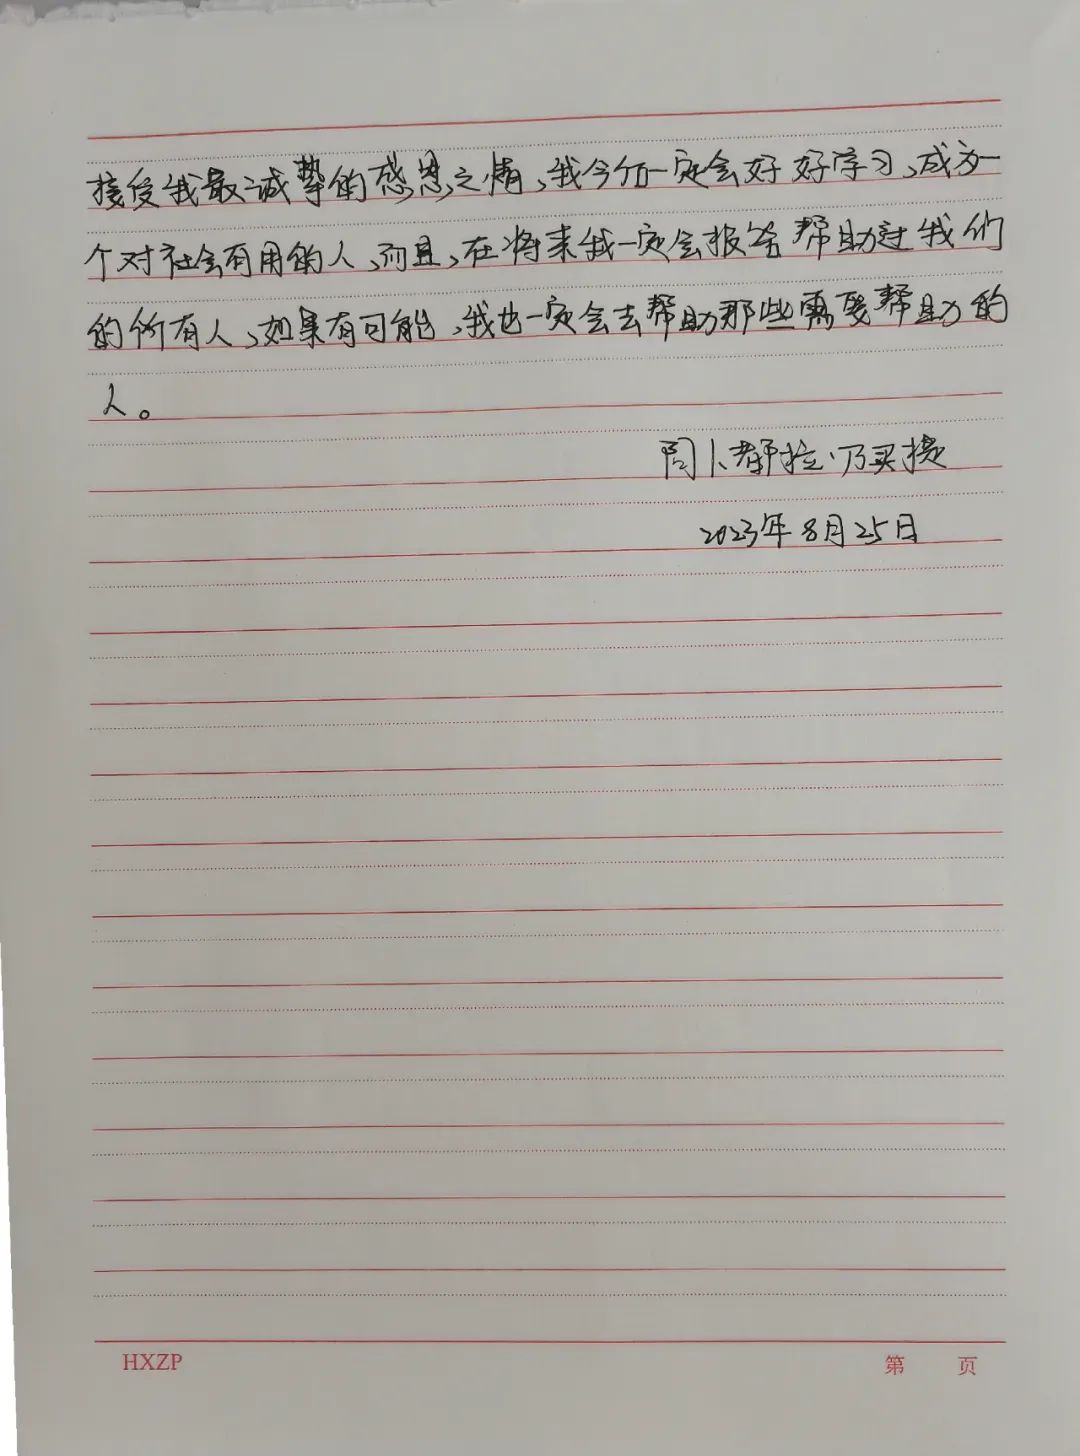 接受我最诚挚的感恩之情、我今后一定会好好学习、成为一
个对社会有用的人、而且、在将来我一定会报答帮助过我们
的所有人、如果有可能、我也一定会去帮助那些需要帮助的
人。
阿卜都拉·乃买提
2023年8月25日
HXZP
第 页